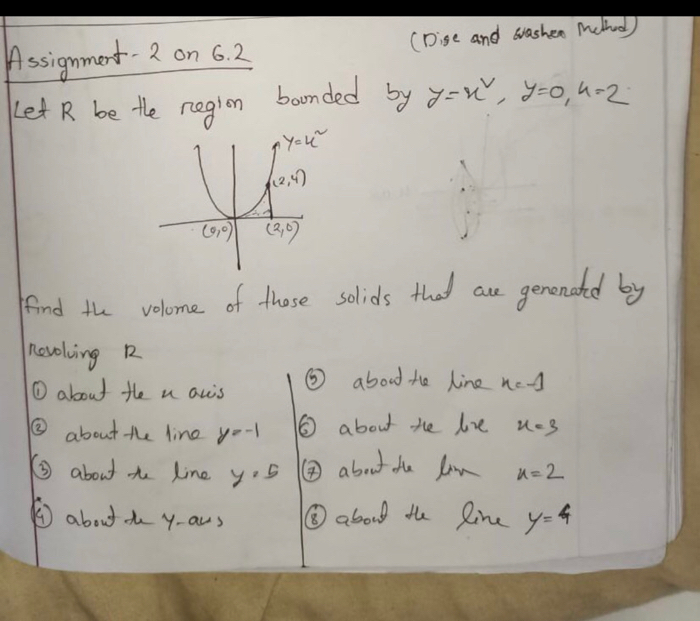 (Disc and washer Method)
Assignment - 2 on 6.2
Let R be the region bounded by y=x², y=0, x=2
y=x²
(2,4)
(0,0) (2,0)
find the volume of those solids that are generated by
revolving R
① about the x axis
② about the line y=-1
③ about the line y=5
④ about the y-axis
⑤ about the line x=-1
⑥ about the line x=3
⑦ about the line x=2
⑧ about the line y=4